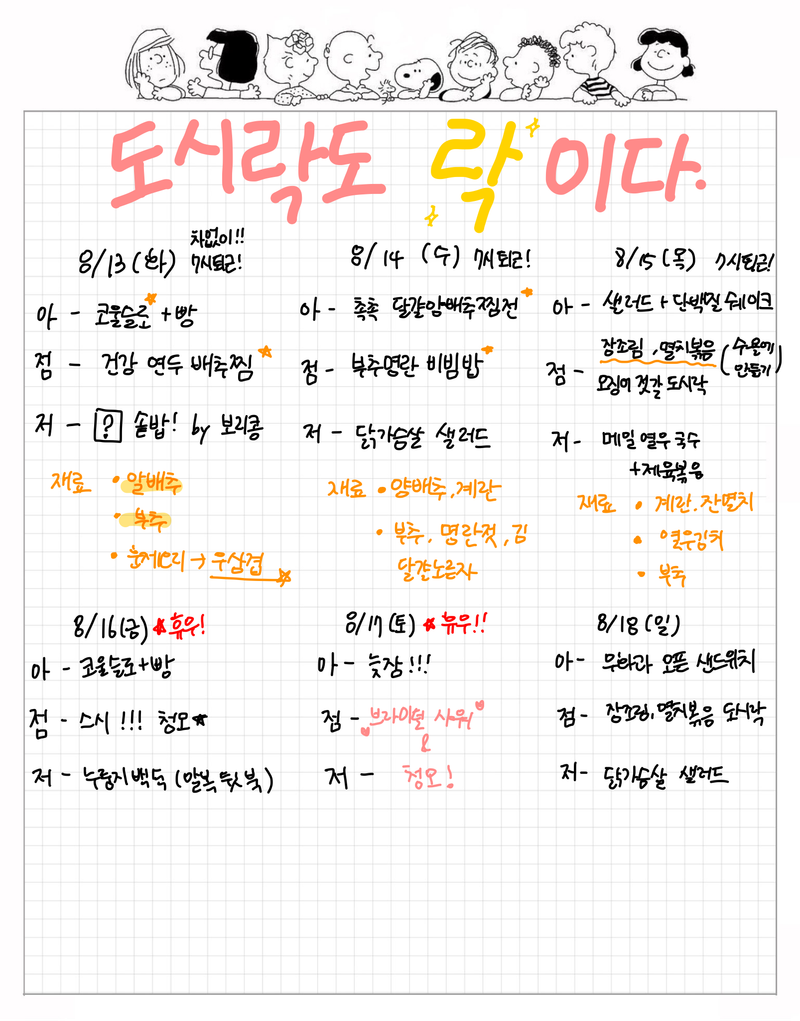 도시락도 락이다.
8/13 (화) 차없이!! 7시퇴근!
아 - 코울슬로 + 빵
점 - 건강 연두 배추찜
저 - ? 솥밥! by 보리콩
재료 • 알배추
• 부추
• 훈제오리 → 우삼겹
8/14 (수) 7시퇴근!
아 - 촉촉 달걀양배추찜전
점 - 부추명란 비빔밥
저 - 닭가슴살 샐러드
재료 • 양배추, 계란
• 부추, 명란젓, 김
달걀노른자
8/15 (목) 7시퇴근!
아 - 샐러드 + 단백질 쉐이크
점 - 장조림, 멸치볶음 (수요일에 만들기)
오징어 젓갈 도시락
저 - 메밀 열무 국수
+제육볶음
재료 • 계란, 잔멸치
• 열무김치
• 부추
8/16 (금) 휴무!
아 - 코울슬로+빵
점 - 스시 !!! 청모
저 - 누룽지백숙 (말복 뒷북)
8/17 (토) 휴무!!
아 - 늦잠!!!
점 - 브라이덜 샤워
&
저 - 청모!
8/18 (일)
아 - 무화과 오픈 샌드위치
점 - 장조림, 멸치볶음 도시락
저 - 닭가슴살 샐러드